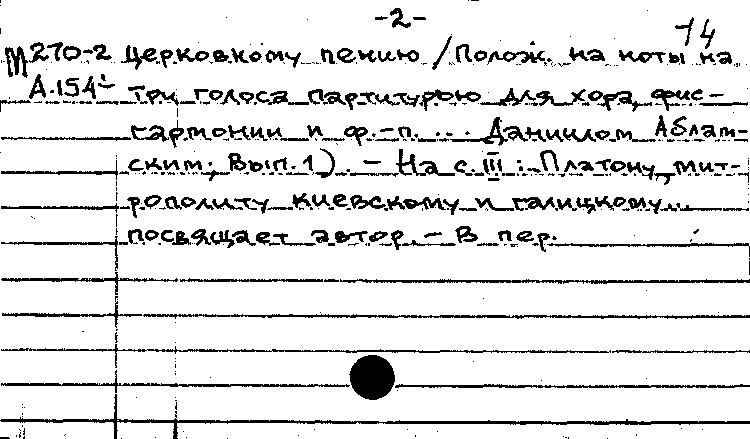 -2-
14
М270-2 Церковному пению /Полож. на ноты на
А.154 три голоса партитурою для хора, фис-
гармонии и ф.-п. ... Даниилом Аблам-
ским; Вып. 1). - На с. III: Платону, мит-
рополиту киевскому и галицкому...
посвящает автор. - В пер.